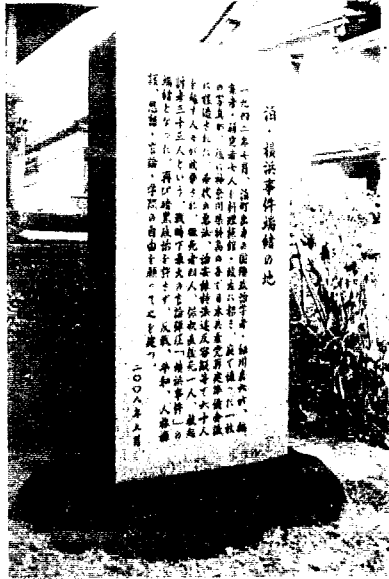 泊・横浜事件端緒の地
一九四二年七月、泊町出身の国際政治学者・細川嘉六が、編
集者・研究者七人を料理旅館・紋左に招き、宴で撮った一枚
の写真が、後に神奈川県特高の手で日本共産党再建準備会議
に捏造された。希代の悪法、治安維持法違反容疑等で六十人
を越す人々が検挙され、獄死者四人、保釈直後死一人、被起
訴者三十三人という、戦時下最大の言論弾圧「横浜事件」の
端緒となった。再び暗黒政治を許さず、反戦、平和、人権擁
護、思想・言論・学問の自由を願って之を建つ。
二〇〇八年七月